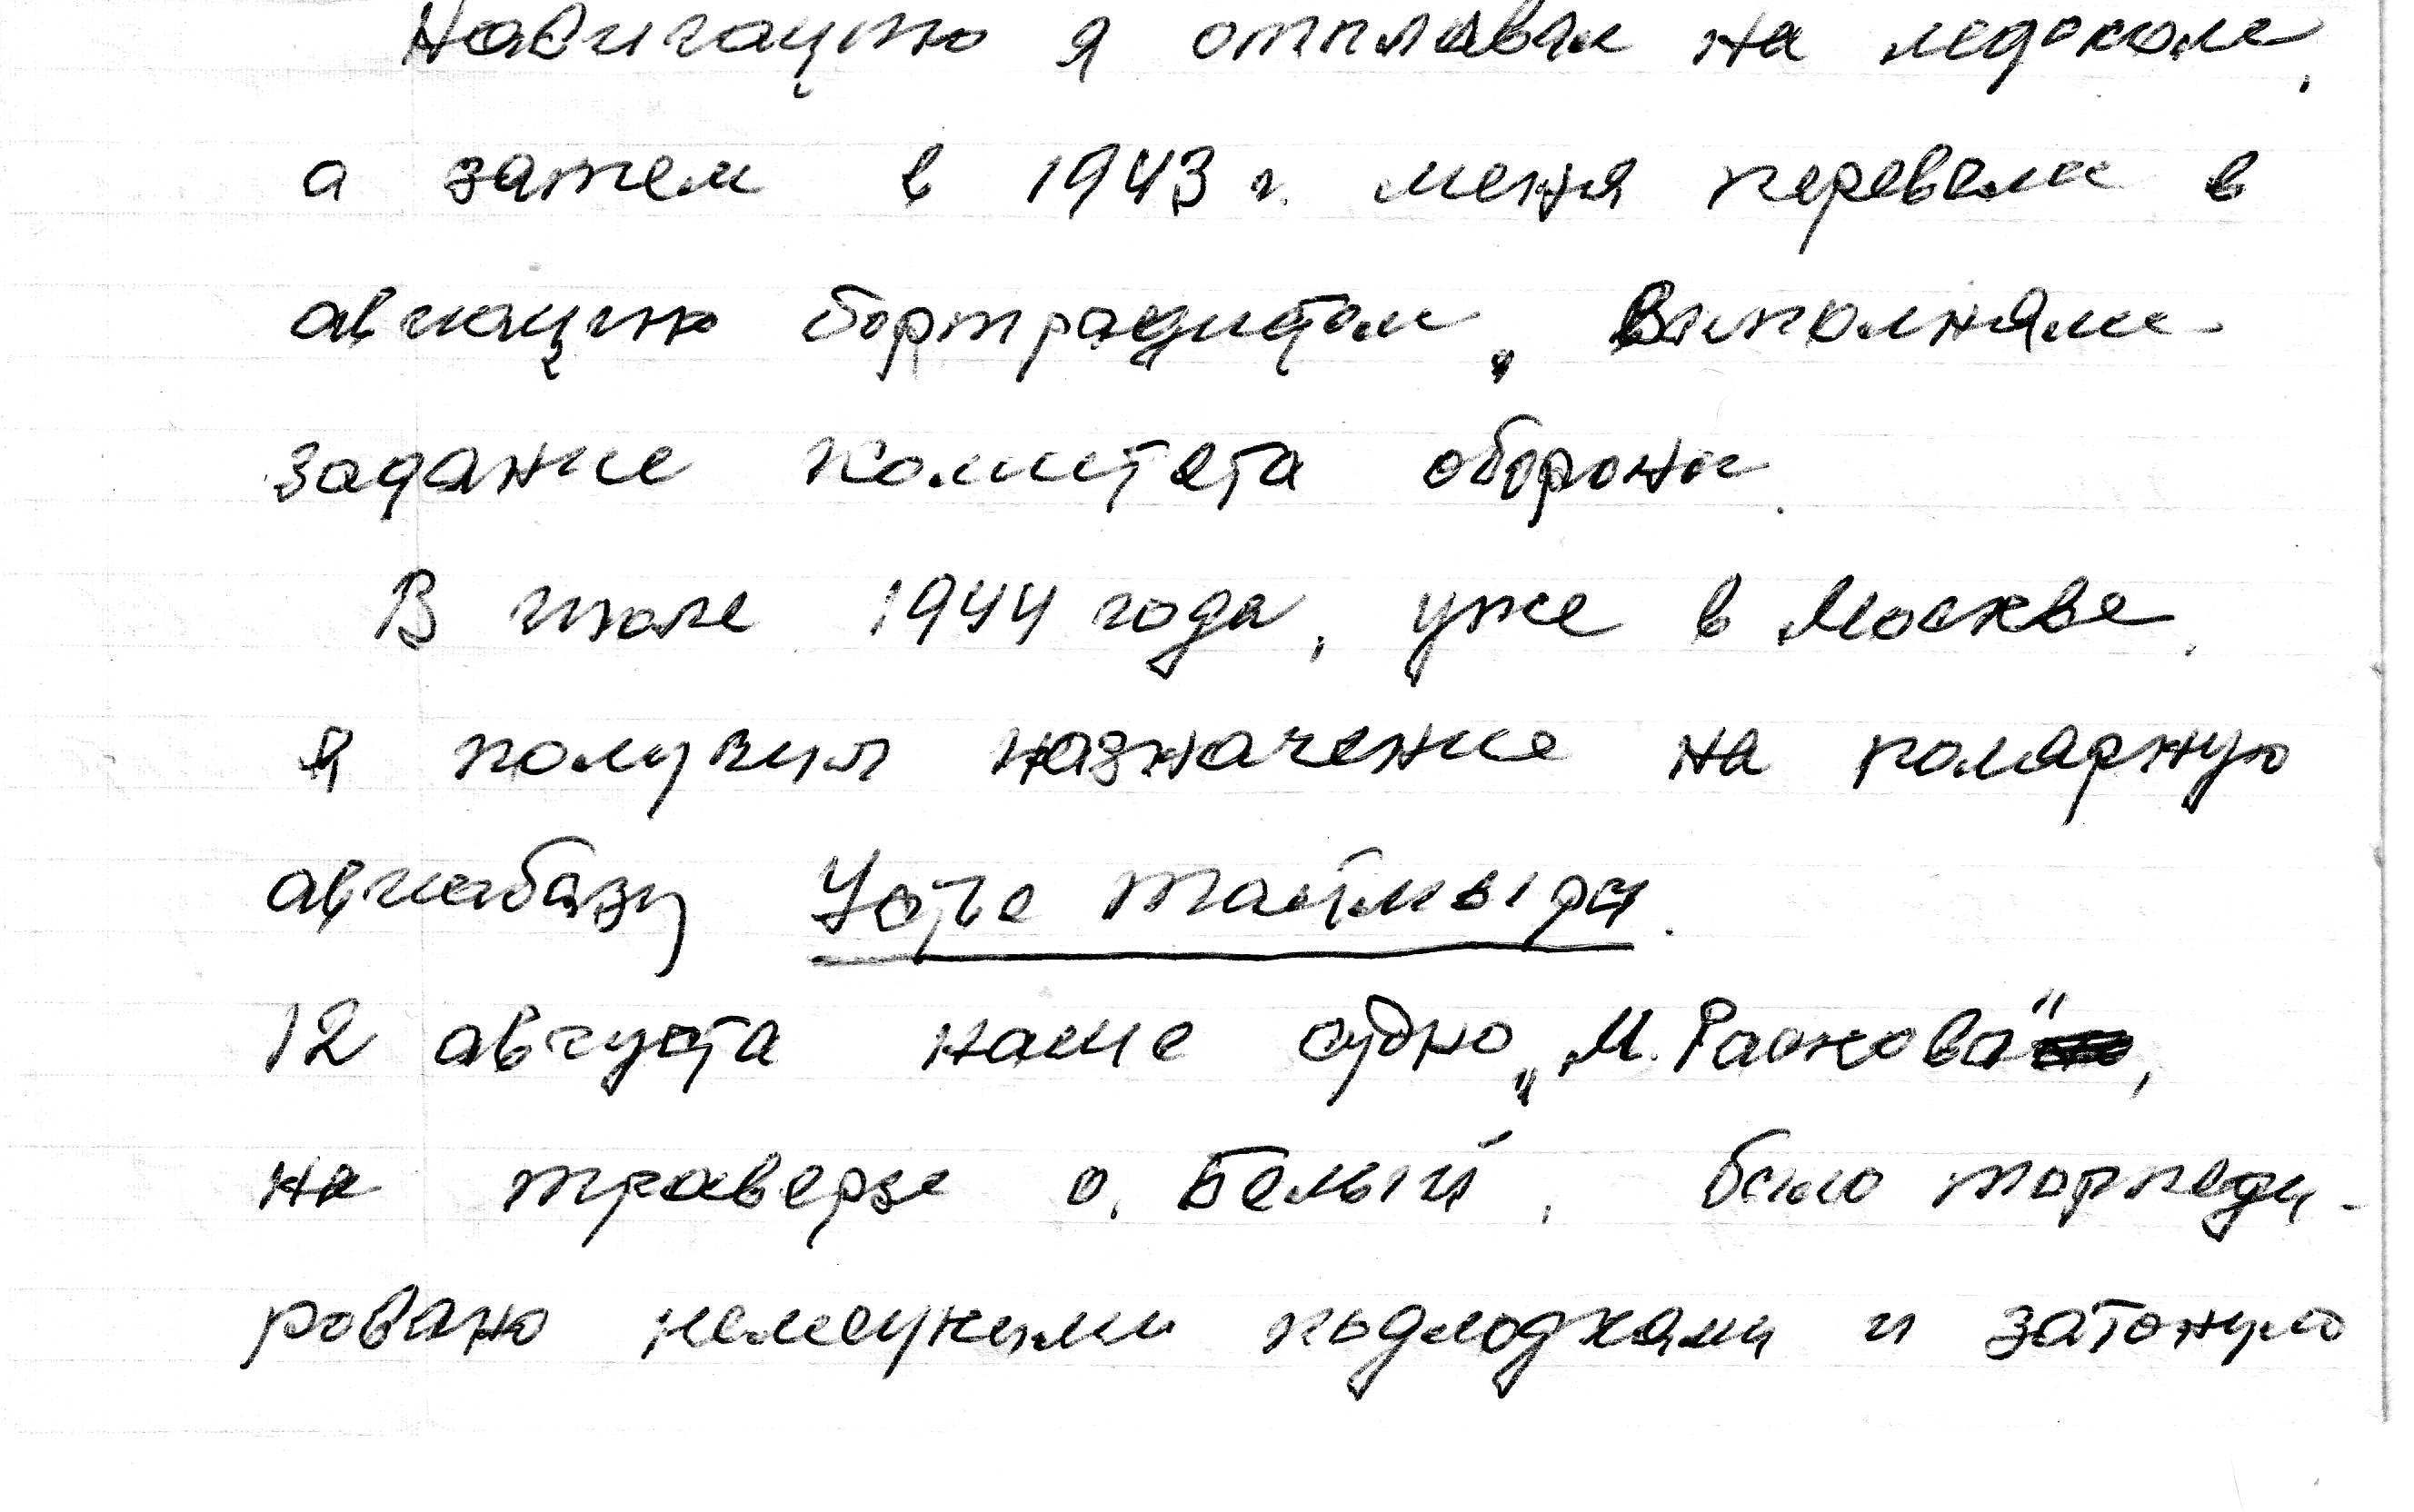 Навигацию я отплавал на ледоколе,
а затем в 1943 г. меня перевели в
авиацию бортрадистом, Выполняли
задание комитета обороны.
В июле 1944 года, уже в Москве,
я получил назначение на полярную
авиабазу Усть Таймыра.
12 августа наше судно „М. Раскова",
на траверзе о. Белый, было торпеди-
ровано немецкими подлодками и затонуло